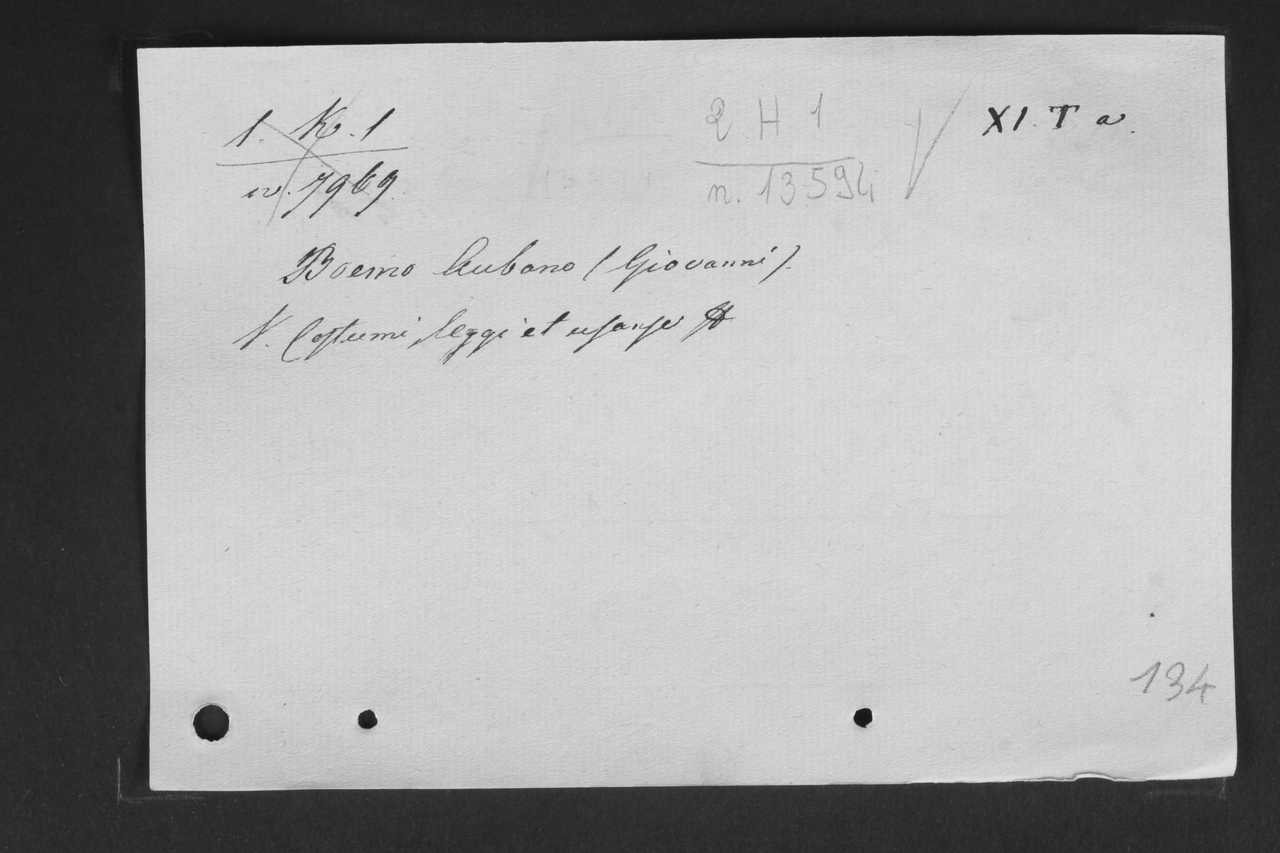 1. K. 1
n. 7969.
2 H 1
n. 13594
XI. T a.
Boemo Aubano (Giovanni).
V. Costumi, leggi et usanze
134